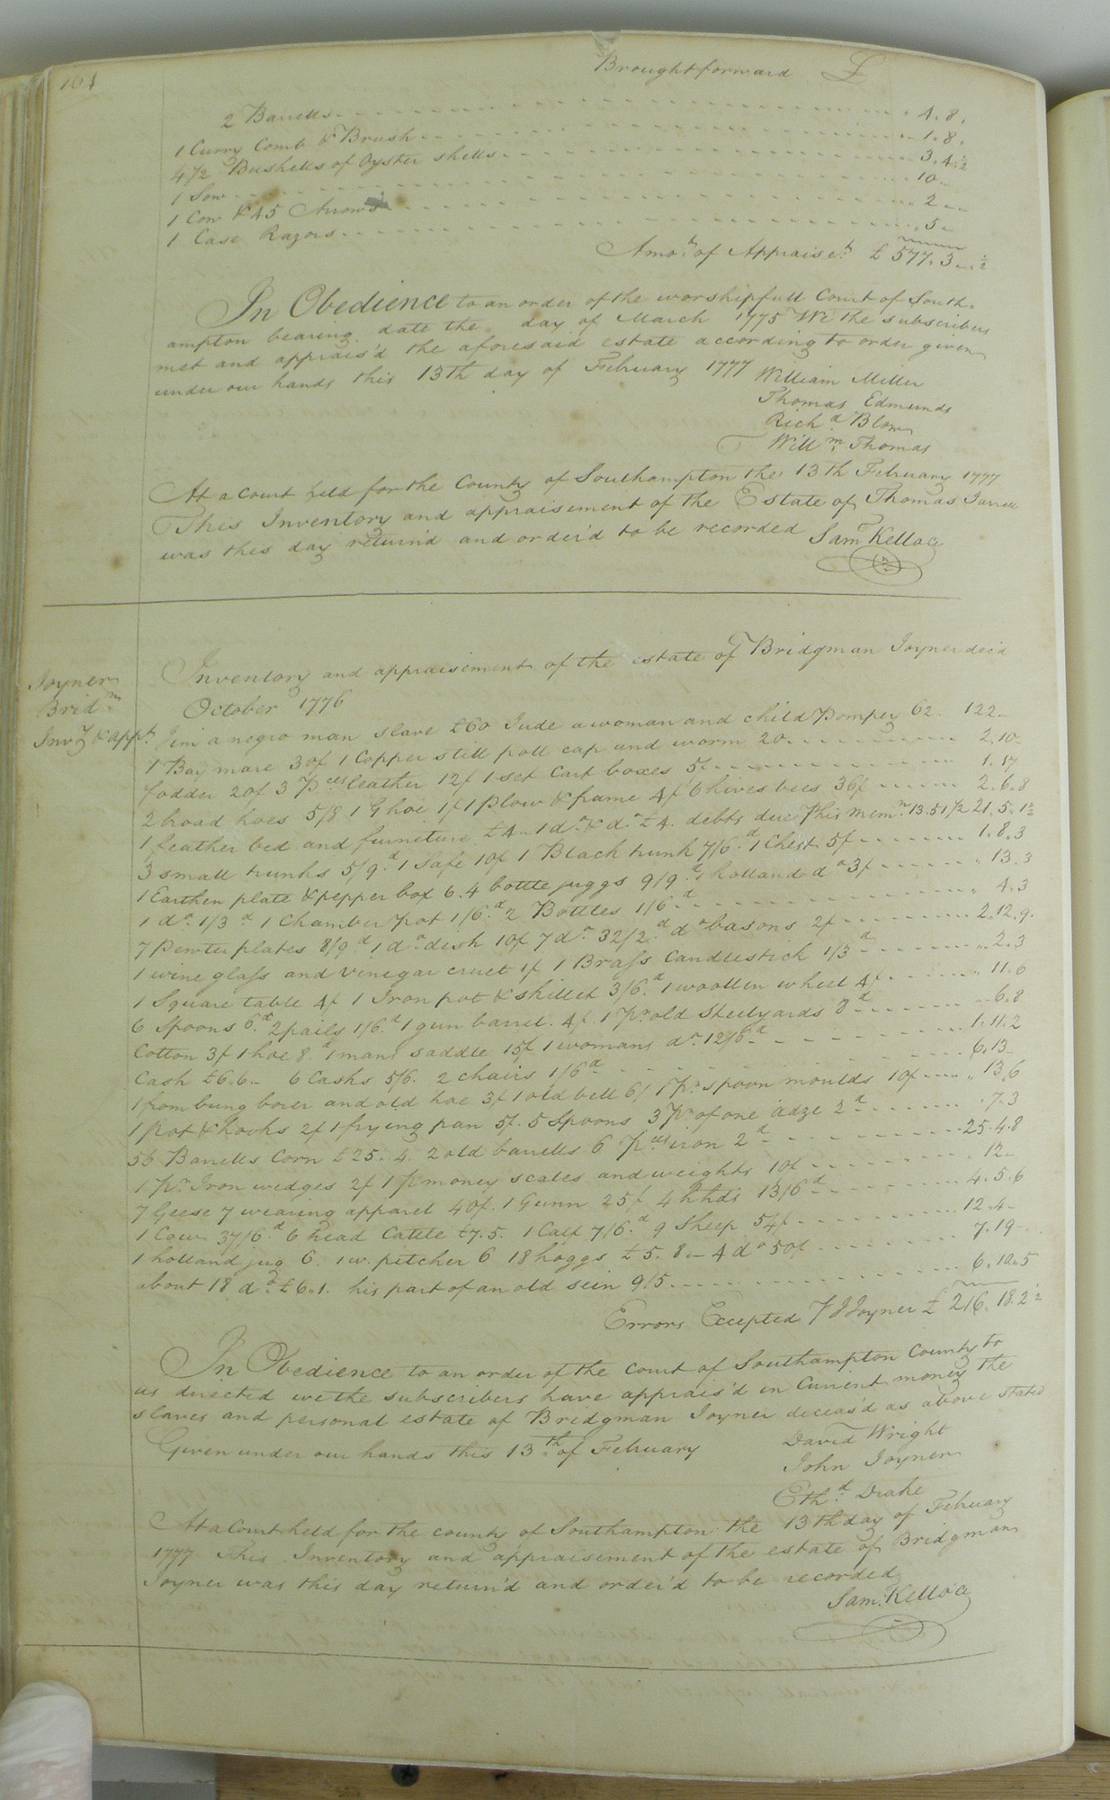 164
Brought forward £
2 Barrells 4.8.
1 Curry Comb & Brush 1.8.
4 1/2 Bushells of Oyster shells 3.4 1/2
1 Sow 10
1 Cow & 45 2
1 Case Razors 5
Amot. of Appraiset. £ 577.3. 1/2
In Obedience to an order of the worshipfull Court of South-
ampton bearing date the day of March 1775 We the subscribers
met and apprais'd the aforesaid estate according to order given
under our hands this 13th day of February 1777 William Miller
Thomas Edmunds
Richd. Blow
Willm. Thomas
At a Court held for the County of Southampton the 13th February 1777
This Inventory and appraisement of the Estate of Thomas Jarrell
was this day return'd and order'd to be recorded Saml Kelloce
Inventory and appraisement of the estate of Bridgman Joyner dec'd
Joyner
Bridm.
Invy & appt.
October 1776
Jim a negro man slave £60 Jude a woman and child Pompey 62 122
1 Bay mare 30/ 1 Copper still poll cap and worm 20 2.10
fodder 20/ 3 Pces leather 12/ 1 set Cart boxes 5/ 1.17
2 broad hoes 5/8 1 G hoe 1/ 1 Plow & frame 4/ 6 hives bees 36/ 2.6.8
1 feather bed and furniture £4. 1 do. & do. £4. debts due this Memm. 13.5 1 1/2 21.5.1 1/2
3 small trunks 5/9d 1 safe 10/ 1 Black trunk 7/6d 1 Chest 5/ 1.8.3
1 Earthen plate & pepper box 6. 4 bottle juggs 9/9d 1 holland do 3/ 13.3
1 do. 1/3d 1 Chamber Pot 1/6d 2 Bottles 1/6d 4.3
7 Pewter plates 8/9d 1 do. dish 10/ 7 do. 32/2d do basons 2/ 2.12.9.
1 wine glass and vinegar cruet 1/ 1 Brass Candlestick 1/3d 2.3
1 Square table 4/ 1 Iron pot & skillet 3/6d. 1 woollen wheel 4/ 11.6
6 Spoons 6d. 2 pails 1/6d 1 gun barrel. 4/ 1 Pr old Steelyards 8d 6.8
Cotton 3/ 1 hoe 8d 1 mans saddle 15/ 1 womans do. 12/6d 1.11.2
Cash £6.6 6 Casks 5/6. 2 chairs 1/6d 6.13
1 from bung borer and old hoe 3/ 1 old bell 6/ 1 Pr spoon moulds 10/ 13.6
1 Pot & hooks 2/ 1 frying pan 5/. 5 Spoons 3 Pr of one adze 2d 7.3
56 Barrells Corn £25.4. 2 old barrells 6 Pces iron 2d 25.4.8
1 Pr. Iron wedges 2/ 1 P money scales and weights 10/ 12
7 Geese 7 wearing apparel 40/. 1 Gunn 25/ 4 hhds 13/6d 4.5.6
1 Cow 37/6d 6 head Cattle £7.5. 1 Calf 7/6d 9 Sheep 54/ 12.4
1 holland jug 6. 1 w. pitcher 6 18 hoggs £5.8 4 do 50/ 7.19
about 18 do £6.1. his part of an old sein 9/5 6.10.5
Errors Excepted J Joyner £ 216.18.2 1/2
In Obedience to an order of the Court of Southampton County to
us directed we the subscribers have apprais'd in Current money the
slaves and personal estate of Bridgman Joyner deceas'd as above stated
Given under our hands this 13th of February
David Wright
John Joyner
Ethd. Drake
At a Court held for the county of Southampton the 13th day of February
1777 This Inventory and appraisement of the estate of Bridgman
Joyner was this day return'd and order'd to be recorded
Sam. Kelloce